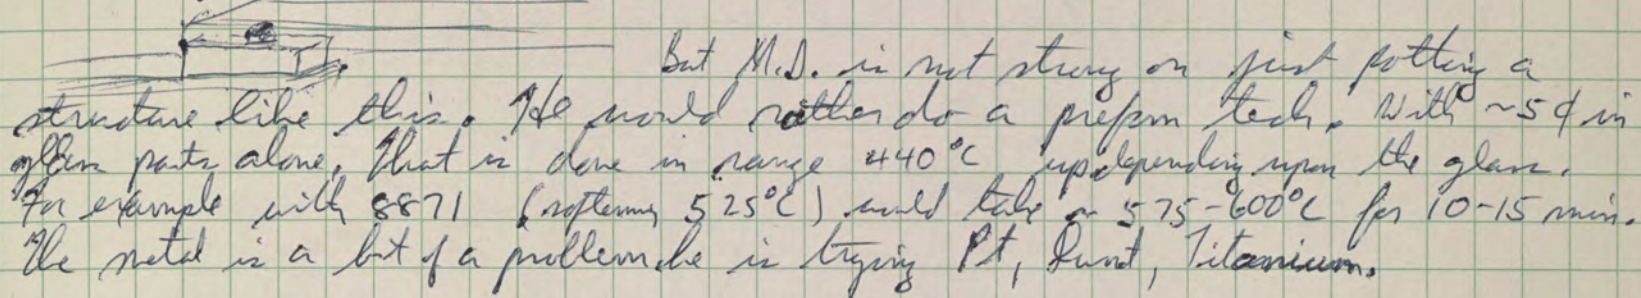 But M.D. is not strong on just potting a
structure like this. He would rather do a preform tech. With ~5¢ in
glass parts alone. That is done in range 440°C up depending upon the glass.
For example with 8871 (softening 525°C) would take ~ 575-600°C for 10-15 min.
The metal is a bit of a problem he is trying Pt, Titanium.